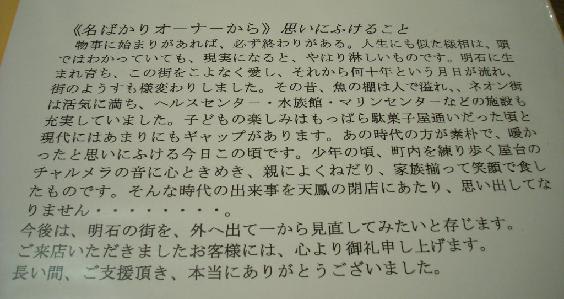 《名ばかりオーナーから》 思いにふけること
物事に始まりがあれば、必ず終わりがある。人生にも似た様相は、頭
ではわかっていても、現実になると、やはり淋しいものです。明石に生
まれ育ち、この街をこよなく愛し、それから何十年という月日が流れ、
街のようすも様変わりしました。その昔、魚の棚は人で溢れ、、ネオン街
は活気に満ち、ヘルスセンター・水族館・マリンセンターなどの施設も
充実していました。子どもの楽しみはもっぱら駄菓子屋通いだった頃と
現代にはあまりにもギャップがあります。あの時代の方が素朴で、暖か
ったと思いにふける今日この頃です。少年の頃、町内を練り歩く屋台の
チャルメラの音に心ときめき、親によくねだり、家族揃って笑顔で食し
たものです。そんな時代の出来事を天鳳の閉店にあたり、思い出してな
りません・・・・・・・・。
今後は、明石の街を、外へ出て一から見直してみたいと存じます。
ご来店いただきましたお客様には、心より御礼申し上げます。
長い間、ご支援頂き、本当にありがとうございました。